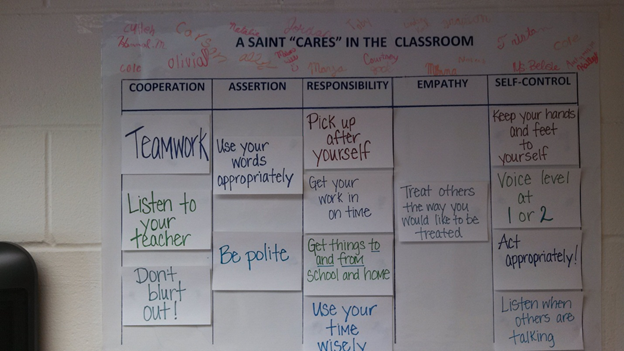 Olivia
Cole
Cole
A SAINT "CARES" IN THE CLASSROOM
COOPERATION
ASSERTION
RESPONSIBILITY
EMPATHY
SELF-CONTROL
Teamwork
Listen to
your
teacher
Don't
blurt
out!
Use your
words
appropriately
Be polite
Pick up
after
yourself
Get your
work in
on time
Get things to
and from
school and home
Use your
time
wisely
Treat others
the way you
would like to be
treated
Keep your hands
and feet
to
yourself
Voice level
at
1 or 2
Act
appropriately!
Listen when
others are
talking